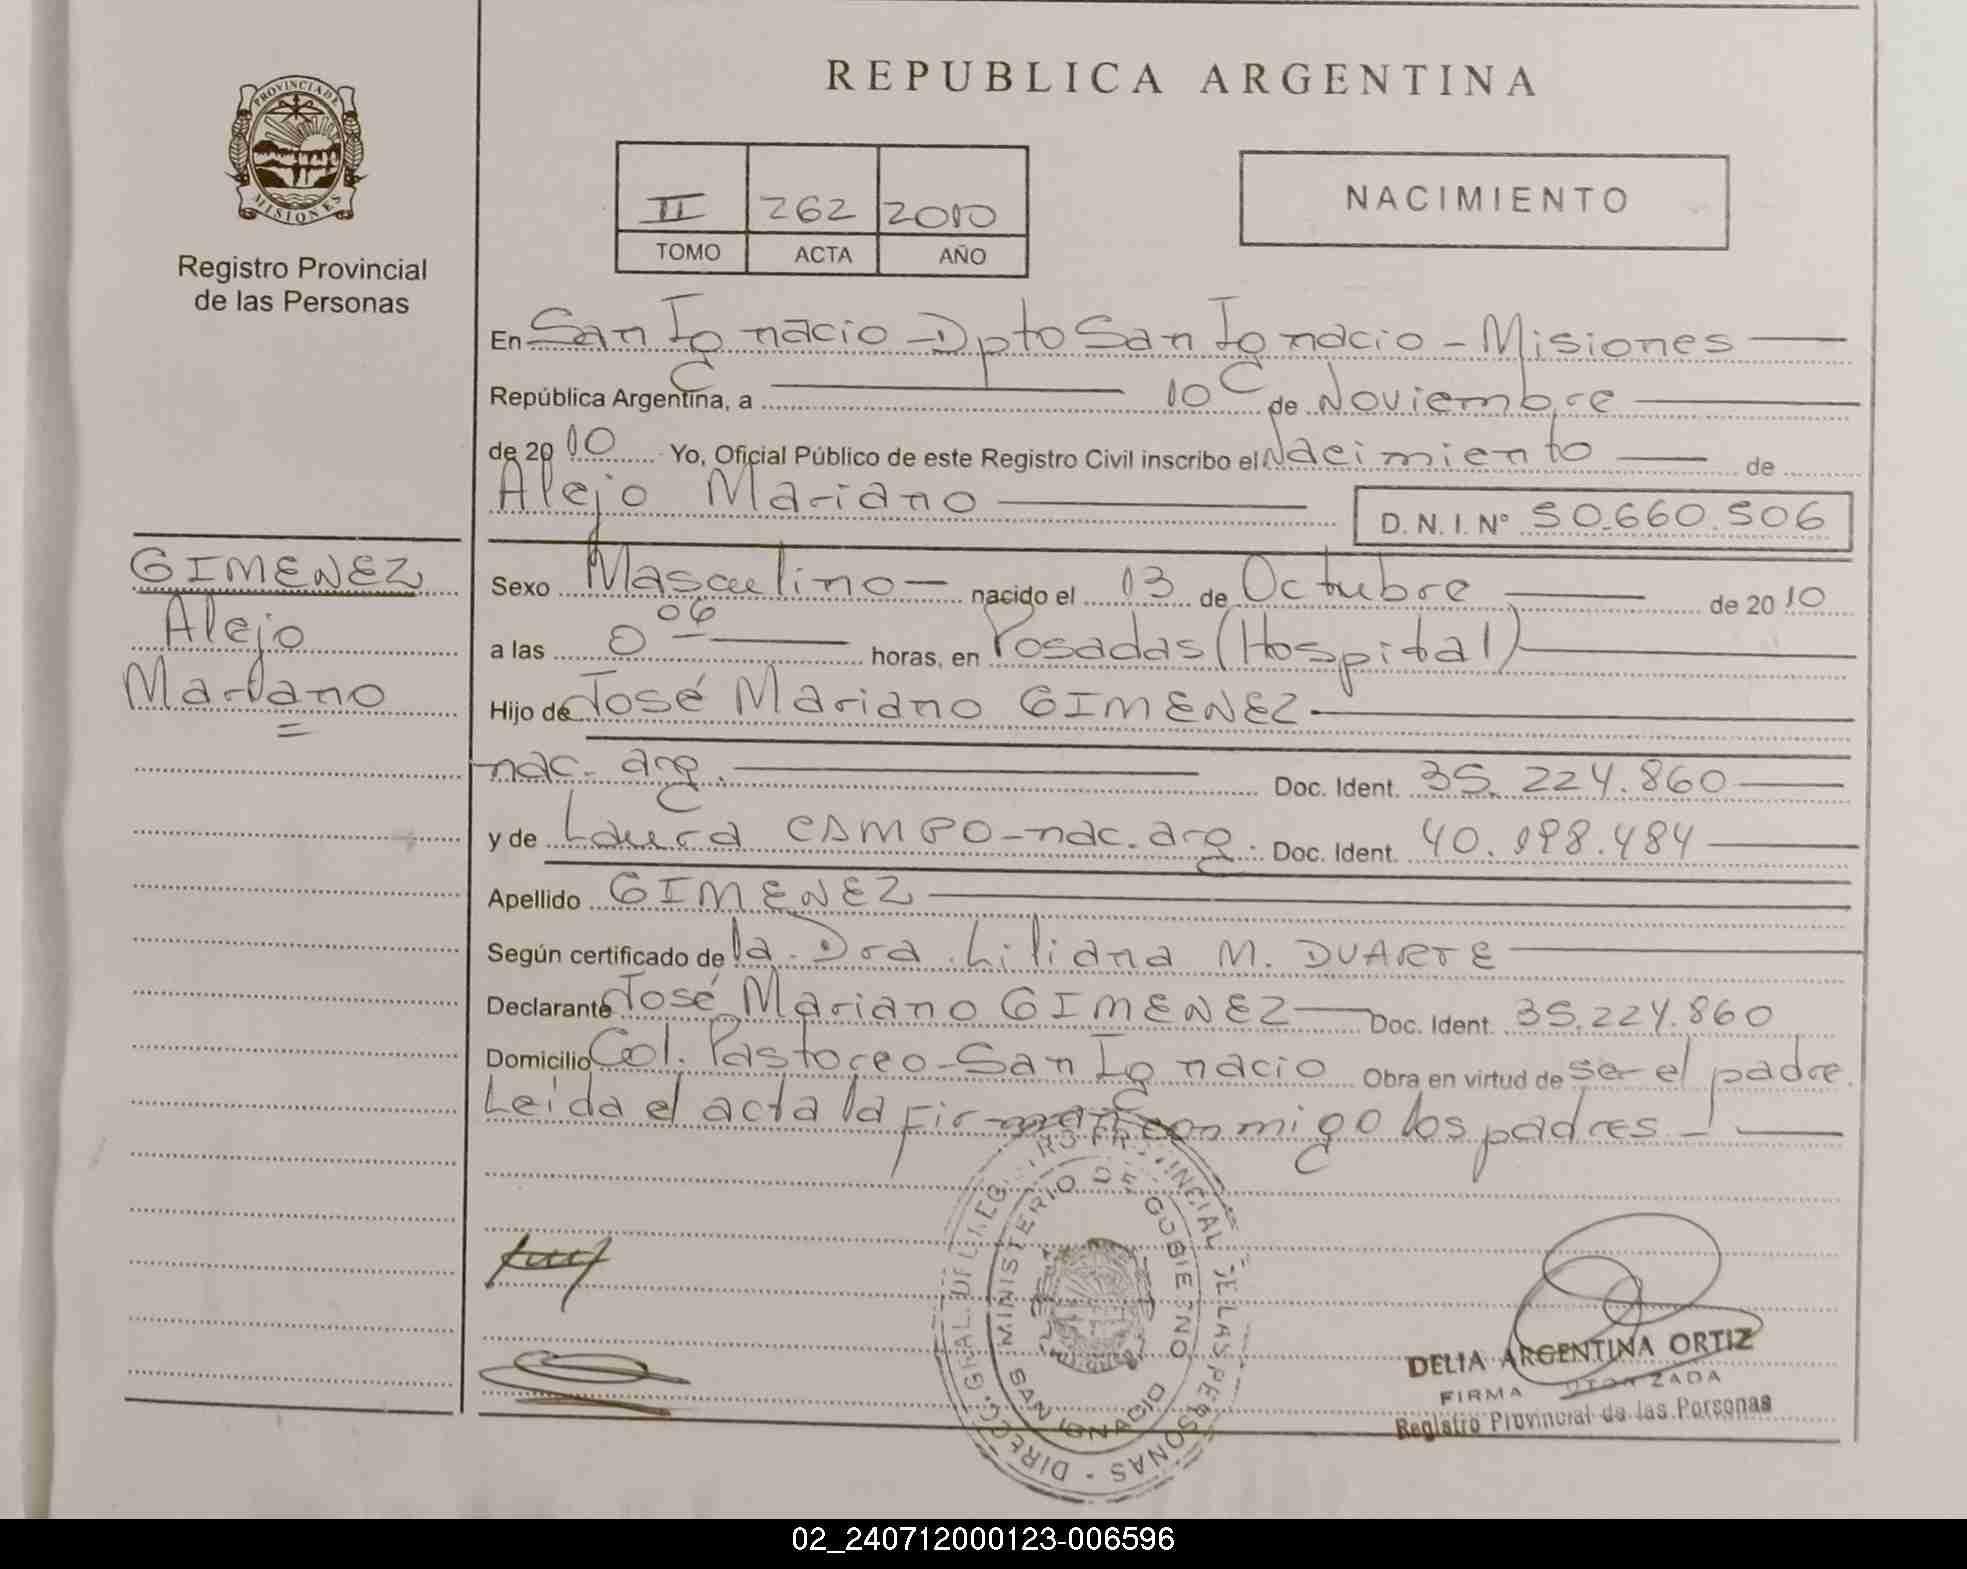 REPUBLICA ARGENTINA
PROVINCIA DE MISIONES
Registro Provincial
de las Personas
II 262 2010
TOMO ACTA AÑO
NACIMIENTO
En San Ignacio - Dpto San Ignacio - Misiones
República Argentina, a 10 de Noviembre
de 2010 Yo, Oficial Público de este Registro Civil inscribo el Nacimiento de
Alejo Mariano D.N.I. Nº 50.660.506
GIMENEZ
Alejo
Mariano
Sexo Masculino nacido el 13 de Octubre de 2010
a las 0 06 horas, en Posadas (Hospital)
Hijo de José Mariano GIMENEZ
nac. arg. Doc. Ident. 35.224.860
y de Laura CAMPO - nac. arg. Doc. Ident. 40.198.484
Apellido GIMENEZ
Según certificado de la Dra. Liliana M. DUARTE
Declarante José Mariano GIMENEZ Doc. Ident. 35.224.860
Domicilio Col. Pastoreo - San Ignacio Obra en virtud de ser el padre
Leída el acta la firman conmigo los padres
MINISTERIO DE GOBIERNO
SAN IGNACIO
DELIA ARGENTINA ORTIZ
FIRMA AUTORIZADA
Registro Provincial de las Personas
02_240712000123-006596